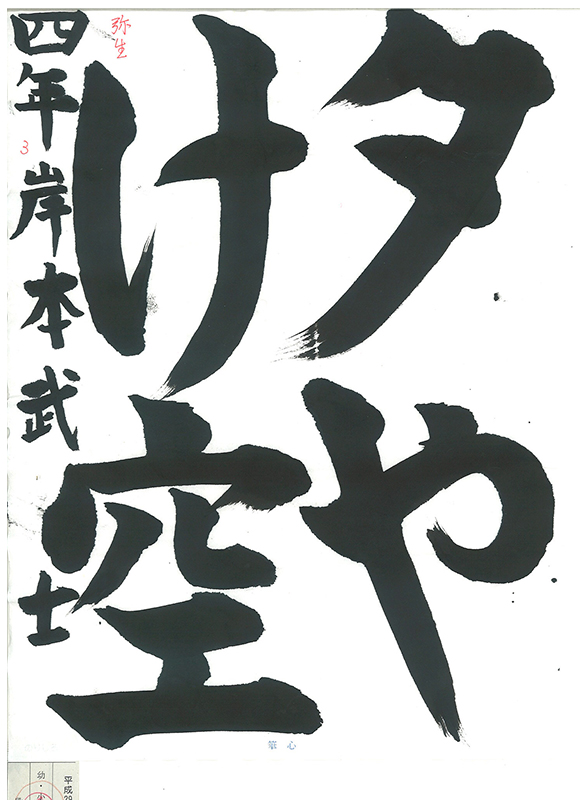 夕や
け空
四年 岸本武士
弥生
3
心
幼・
平成29